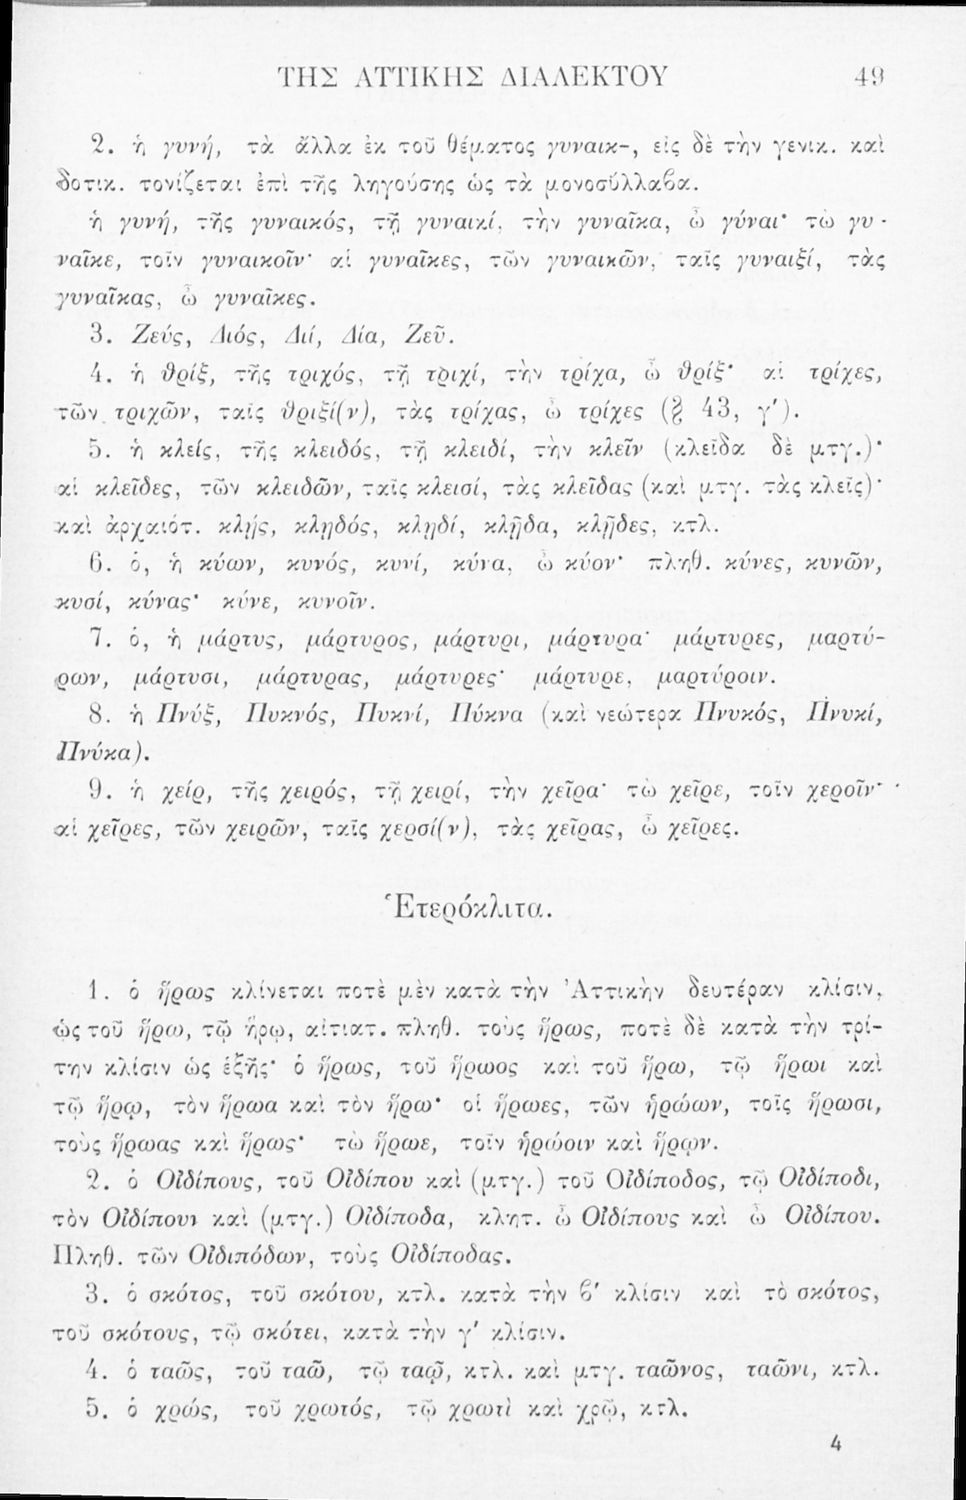 ΤΗΣ ΑΤΤΙΚΗΣ ΔΙΑΛΕΚΤΟΥ 49
2. ἡ γυνή, τὰ ἄλλα ἐκ τοῦ θέματος γυναικ-, εἰς δὲ τὴν γενικ. καὶ
δοτικ. τονίζεται ἐπὶ τῆς ληγούσης ὡς τὰ μονοσύλλαβα.
ἡ γυνή, τῆς γυναικός, τῇ γυναικί, τὴν γυναῖκα, ὦ γύναι· τὼ γυ-
ναῖκε, τοῖν γυναικοῖν· αἱ γυναῖκες, τῶν γυναικῶν, ταῖς γυναιξί, τὰς
γυναῖκας, ὦ γυναῖκες.
3. Ζεύς, Διός, Διί, Δία, Ζεῦ.
4. ἡ θρίξ, τῆς τριχός, τῇ τριχί, τὴν τρίχα, ὦ θρίξ· αἱ τρίχες,
τῶν τριχῶν, ταῖς θριξί(ν), τὰς τρίχας, ὦ τρίχες (§ 43, γ′).
5. ἡ κλείς, τῆς κλειδός, τῇ κλειδί, τὴν κλεῖν (κλεῖδα δὲ μτγ.)·
αἱ κλεῖδες, τῶν κλειδῶν, ταῖς κλεισί, τὰς κλεῖδας (καὶ μτγ. τὰς κλεῖς)·
καὶ ἀρχαιότ. κλῄς, κλῃδός, κλῃδί, κλῇδα, κλῇδες, κτλ.
6. ὁ, ἡ κύων, κυνός, κυνί, κύνα, ὦ κύον· πληθ. κύνες, κυνῶν,
κυσί, κύνας· κύνε, κυνοῖν.
7. ὁ, ἡ μάρτυς, μάρτυρος, μάρτυρι, μάρτυρα· μάρτυρες, μαρτύ-
ρων, μάρτυσι, μάρτυρας, μάρτυρες· μάρτυρε, μαρτύροιν.
8. ἡ Πνύξ, Πυκνός, Πυκνί, Πύκνα (καὶ νεώτερα Πνυκός, Πνυκί,
Πνύκα).
9. ἡ χείρ, τῆς χειρός, τῇ χειρί, τὴν χεῖρα· τὼ χεῖρε, τοῖν χεροῖν·
αἱ χεῖρες, τῶν χειρῶν, ταῖς χερσί(ν), τὰς χεῖρας, ὦ χεῖρες.
Ἑτερόκλιτα.
1. ὁ ἥρως κλίνεται ποτὲ μὲν κατὰ τὴν Ἀττικὴν δευτέραν κλίσιν,
ὡς τοῦ ἥρω, τῷ ἥρῳ, αἰτιατ. πληθ. τοὺς ἥρως, ποτὲ δὲ κατὰ τὴν τρί-
την κλίσιν ὡς ἑξῆς· ὁ ἥρως, τοῦ ἥρωος καὶ τοῦ ἥρω, τῷ ἥρωι καὶ
τῷ ἥρῳ, τὸν ἥρωα καὶ τὸν ἥρω· οἱ ἥρωες, τῶν ἡρώων, τοῖς ἥρωσι,
τοὺς ἥρωας καὶ ἥρως· τὼ ἥρωε, τοῖν ἡρώοιν καὶ ἥρῳν.
2. ὁ Οἰδίπους, τοῦ Οἰδίπου καὶ (μτγ.) τοῦ Οἰδίποδος, τῷ Οἰδίποδι,
τὸν Οἰδίπουν καὶ (μτγ.) Οἰδίποδα, κλητ. ὦ Οἰδίπους καὶ ὦ Οἰδίπου.
Πληθ. τῶν Οἰδιπόδων, τοὺς Οἰδίποδας.
3. ὁ σκότος, τοῦ σκότου, κτλ. κατὰ τὴν β′ κλίσιν καὶ τὸ σκότος,
τοῦ σκότους, τῷ σκότει, κατὰ τὴν γ′ κλίσιν.
4. ὁ ταῶς, τοῦ ταῶ, τῷ ταῷ, κτλ. καὶ μτγ. ταῶνος, ταῶνι, κτλ.
5. ὁ χρώς, τοῦ χρωτός, τῷ χρωτὶ καὶ χρῷ, κτλ.
4